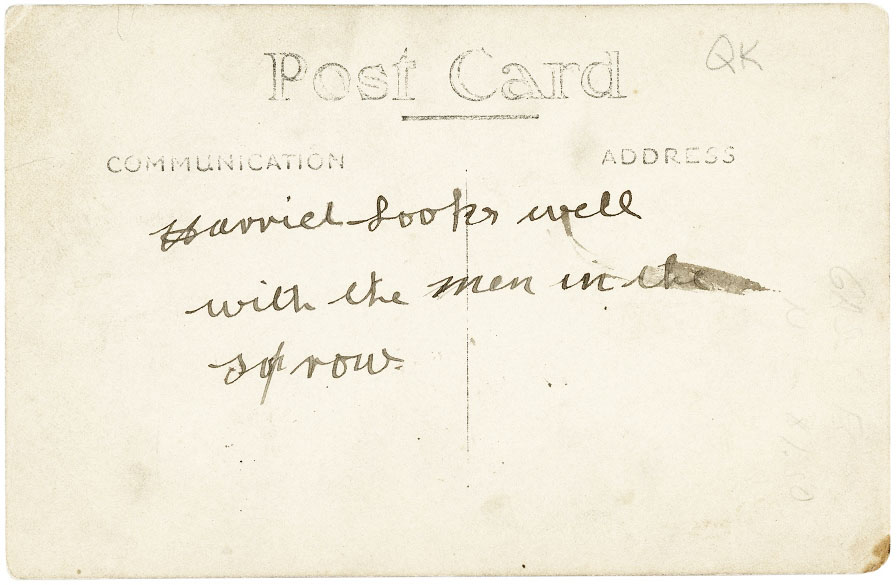 Post Card
QK
COMMUNICATION
ADDRESS
Harriet looks well
with the men in the
row.